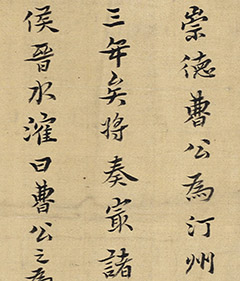 崇德曹公為汀州
三年矣將奏寂諸
侯晉水漼曰曹公之為